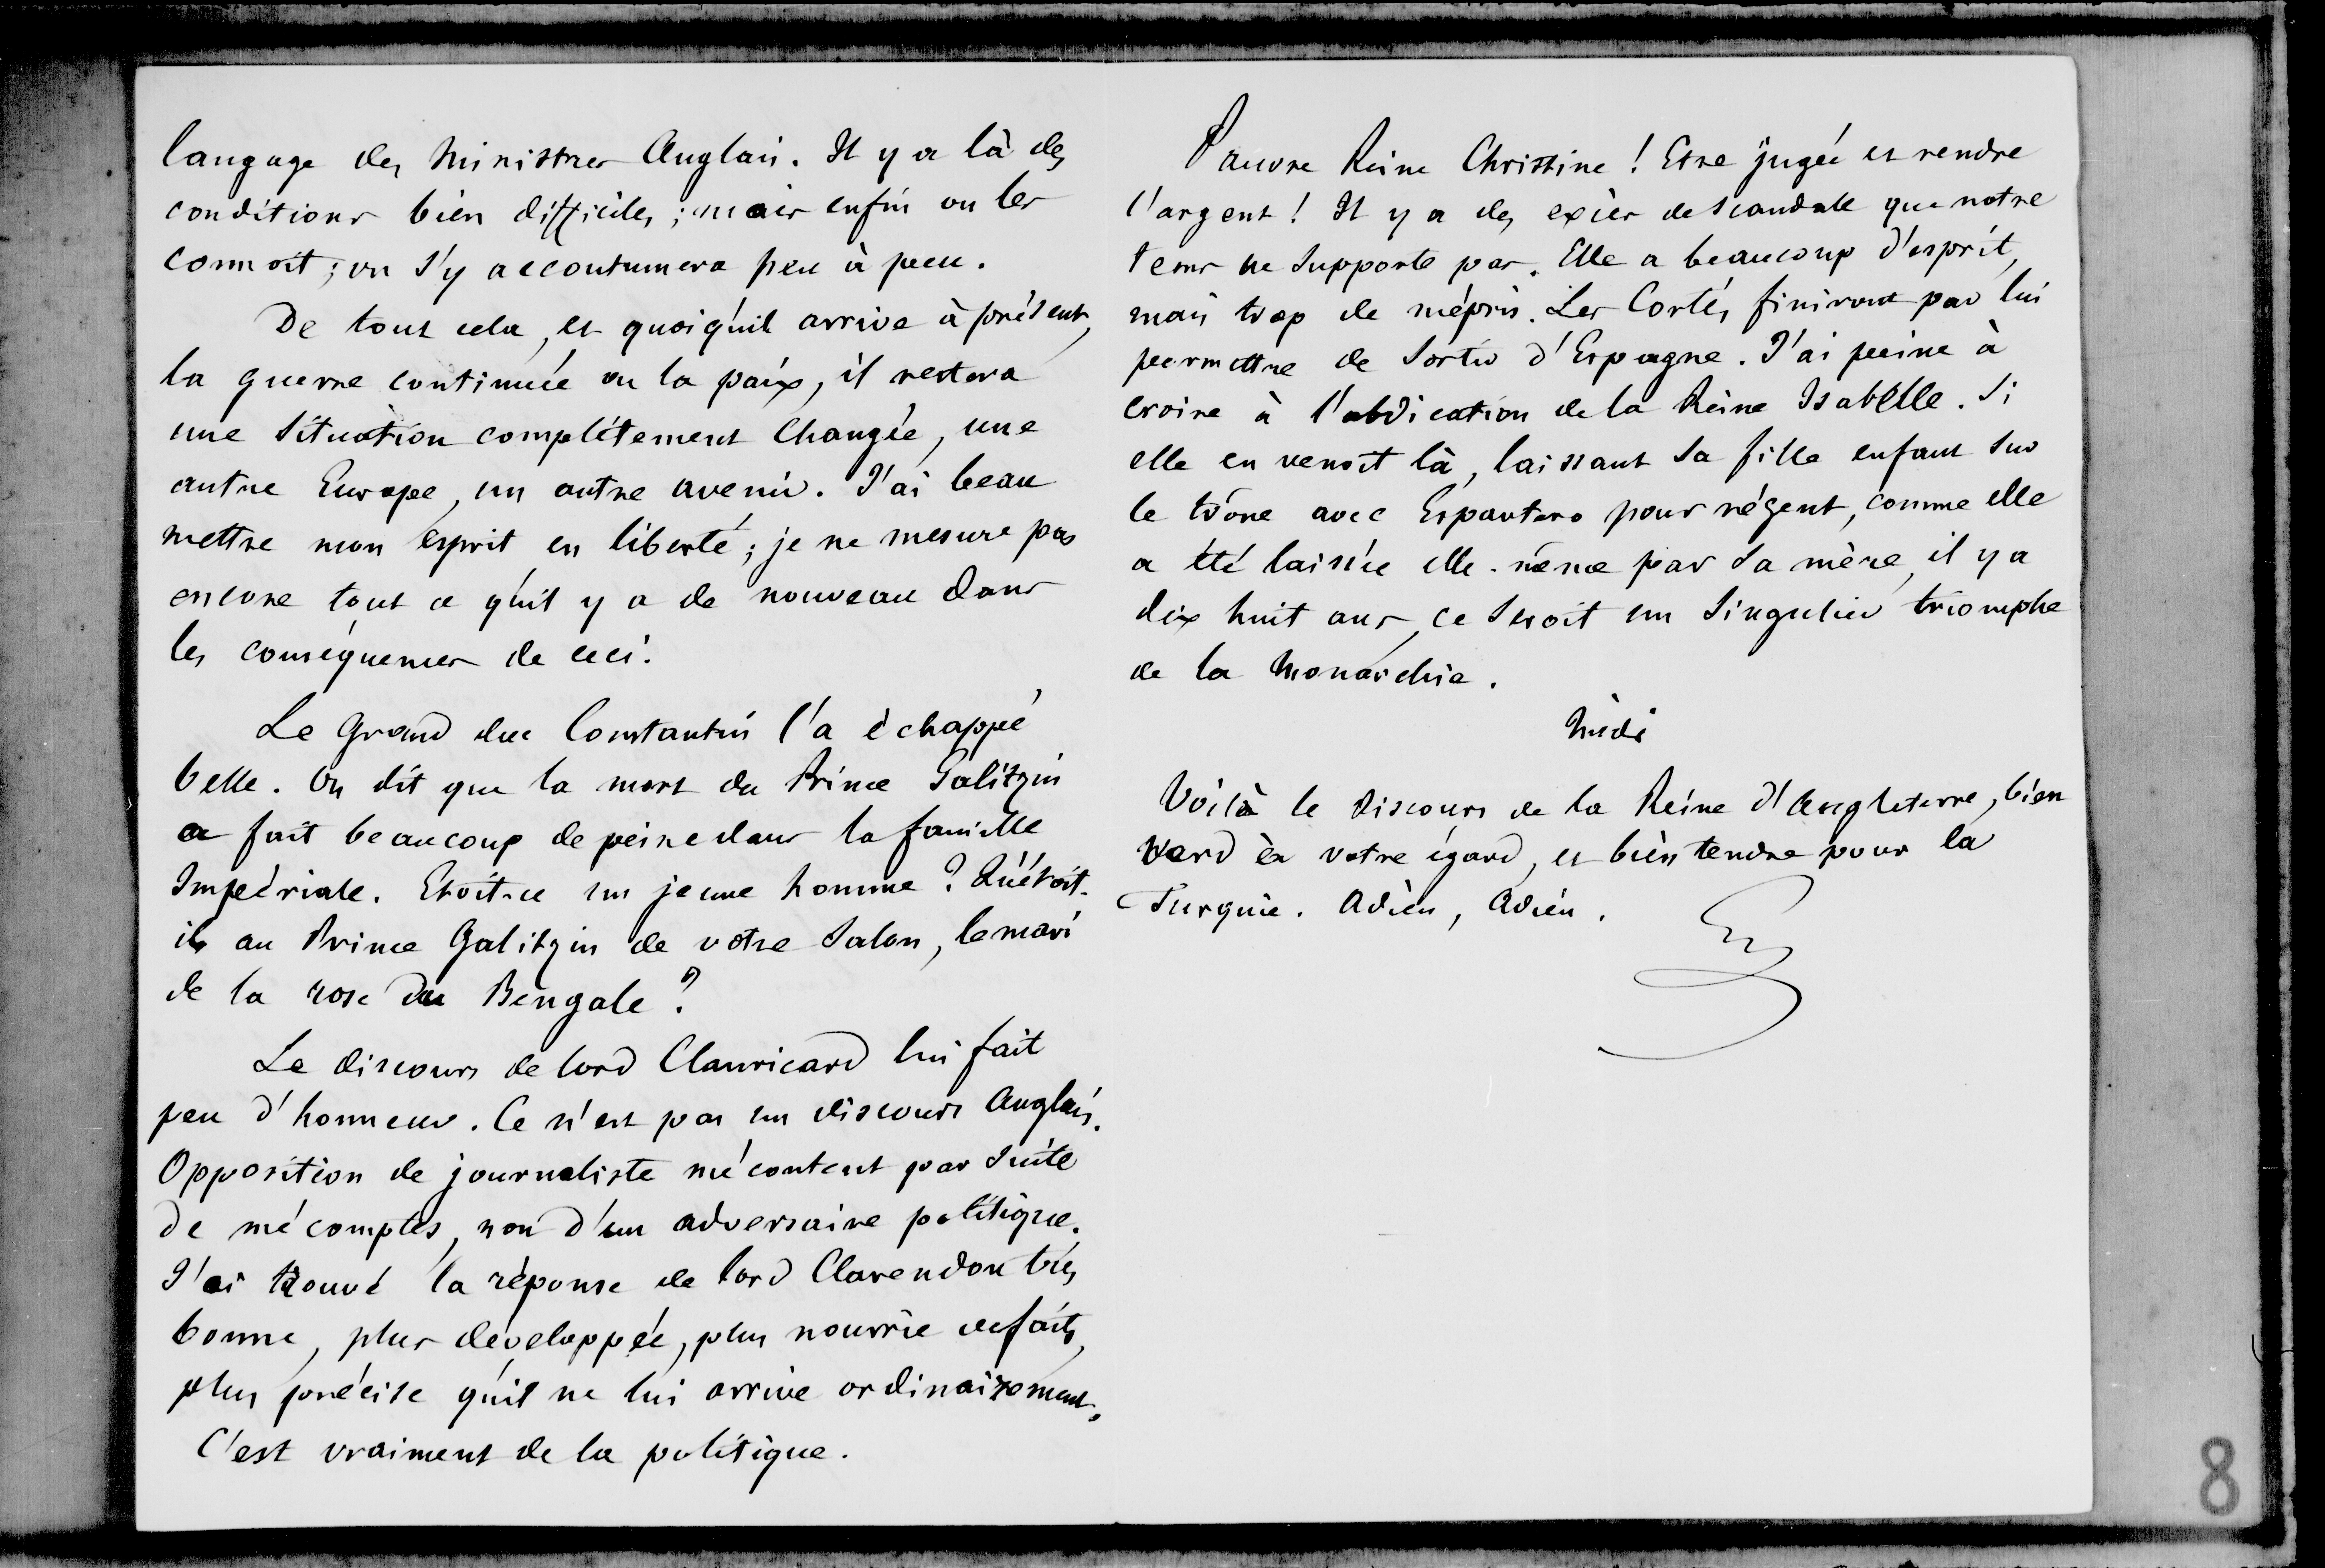 langage des Ministres Anglais. Il y a là des
conditions bien difficiles ; mais enfin on les
connoit ; on s'y accoutumera peu à peu.
De tout cela, et quoiqu'il arrive à présent,
la guerre continuée ou la paix, il restera
une situation complétement changée, une
autre Europe, un autre avenir. J'ai beau
mettre mon esprit en liberté ; je ne mesure pas
encore tout ce qu'il y a de nouveau dans
les conséquences de ceci.
Le grand duc Constantin l'a échappé
belle. On dit que la mort du Prince Galitzin
a fait beaucoup de peine dans la famille
Impériale. Etoit-ce un jeune homme ? Qu'étoit-
il au Prince Galitzin de votre salon, le mari
de la rose du Bengale ?
Le discours de lord Clanricard lui fait
peu d'honneur. Ce n'est pas un discours Anglais.
Opposition de journaliste mécontent par suite
de mécomptes, non d'un adversaire politique.
J'ai trouvé la réponse de lord Clarendon très
bonne, plus développée, plus nourrie de faits,
plus précise qu'il ne lui arrive ordinairement.
C'est vraiment de la politique.
Pauvre Reine Christine ! Etre jugée et rendre
l'argent ! Il y a des excès de scandale que notre
tems ne supporte pas. Elle a beaucoup d'esprit,
mais trop de mépris. Les Cortès finiront par lui
permettre de sortir d'Espagne. J'ai peine à
croire à l'abdication de la Reine Isabelle. Si
elle en venoit là, laissant sa fille enfant sur
le trône avec Espartero pour régent, comme elle
a été laissée elle-même par sa mère, il y a
dix huit ans, ce seroit un singulier triomphe
de la Monarchie.
Midi
Voilà le discours de la Reine d'Angleterre, bien
à votre égard, et bien tendre pour la
Turquie. Adieu, Adieu.
8